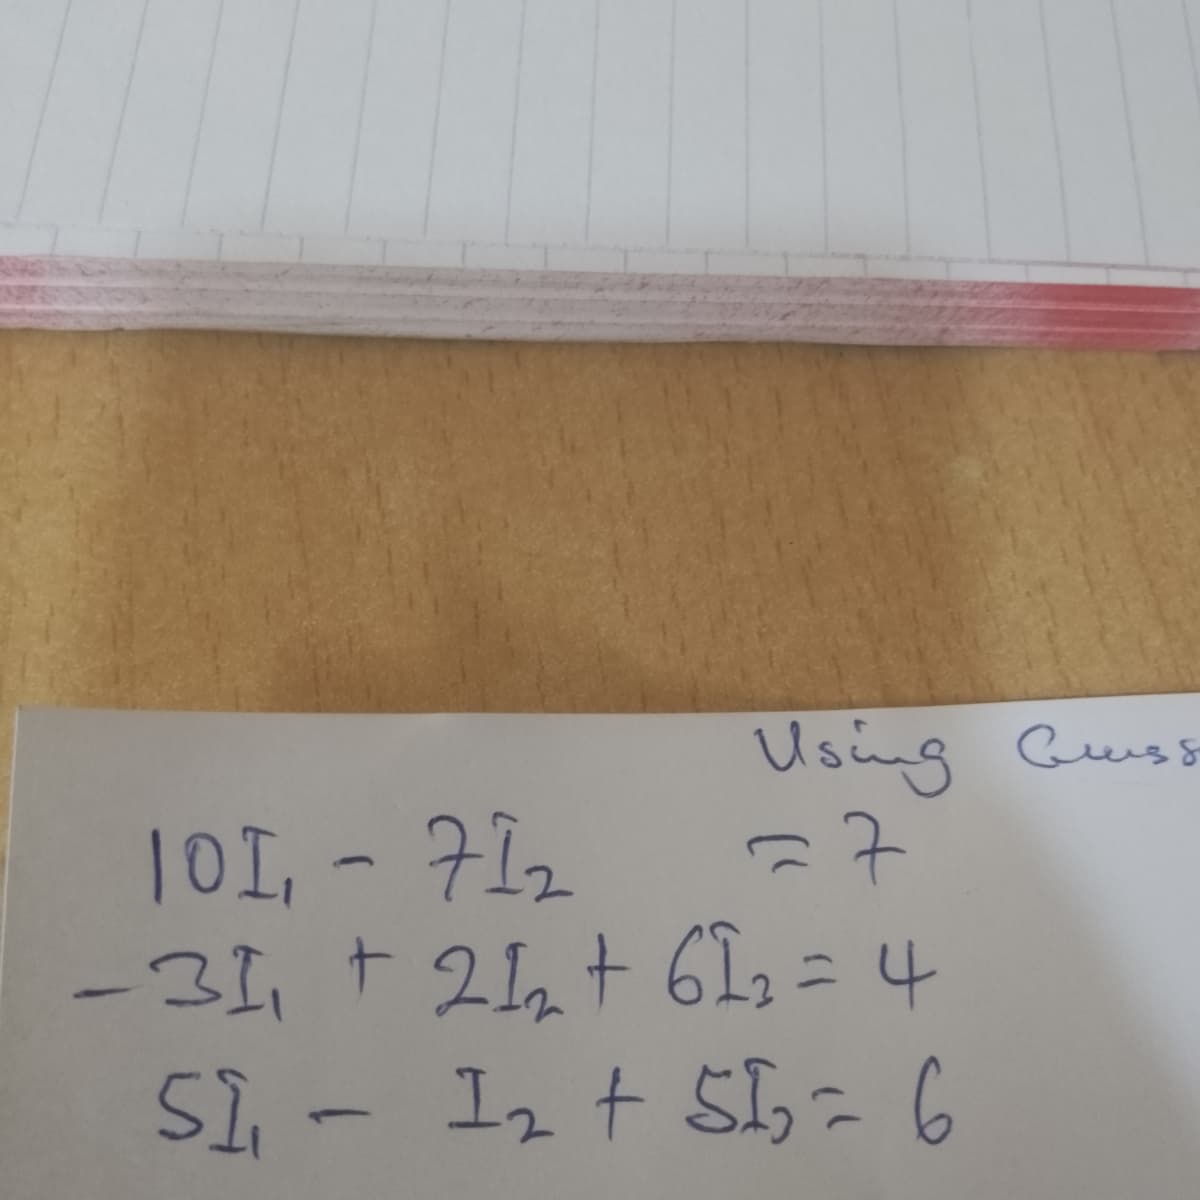 Using Gauss
10I₁ - 7I₂ = 7
-3I₁ + 2I₂ + 6I₃ = 4
5I₁ - I₂ + 5I₃ = 6